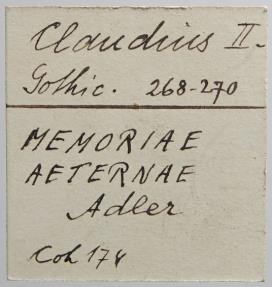 Claudius II.
Gothic. 268-270
MEMORIAE
AETERNAE
Adler
Coh 174